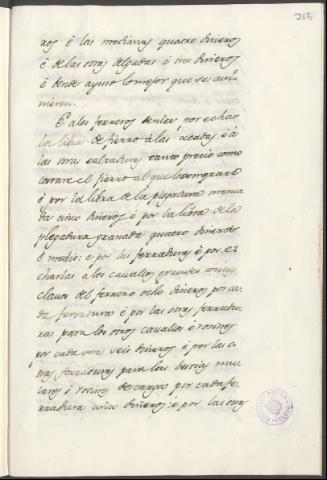 ros é las medianas quatro dineros
é de las otras delgadas é tres dineros
é dende ayuso lo mejor que se avi-
nieren.
E a los ferreros denles por echar
la libra de fierro á las acadas é á
las otras calzaduras tanto precio como
costare el fierro al que lo comprare
é por la libra de la plegadura menu-
da cinco dineros é por la libra de la
plegadura granada quatro dineros
é medio: e por las ferraduras é por e-
charlas a los cavallos grandes con sus
clavos del ferrero ocho dineros por ca-
da ferradura é por las otras ferradu-
ras para los otros cavallos é rocines
por cada una seis dineros é por las o-
tras ferraduras para las bestias mu-
lares é rocines de carga por cada fe-
rradura cinco dineros: é por las otras